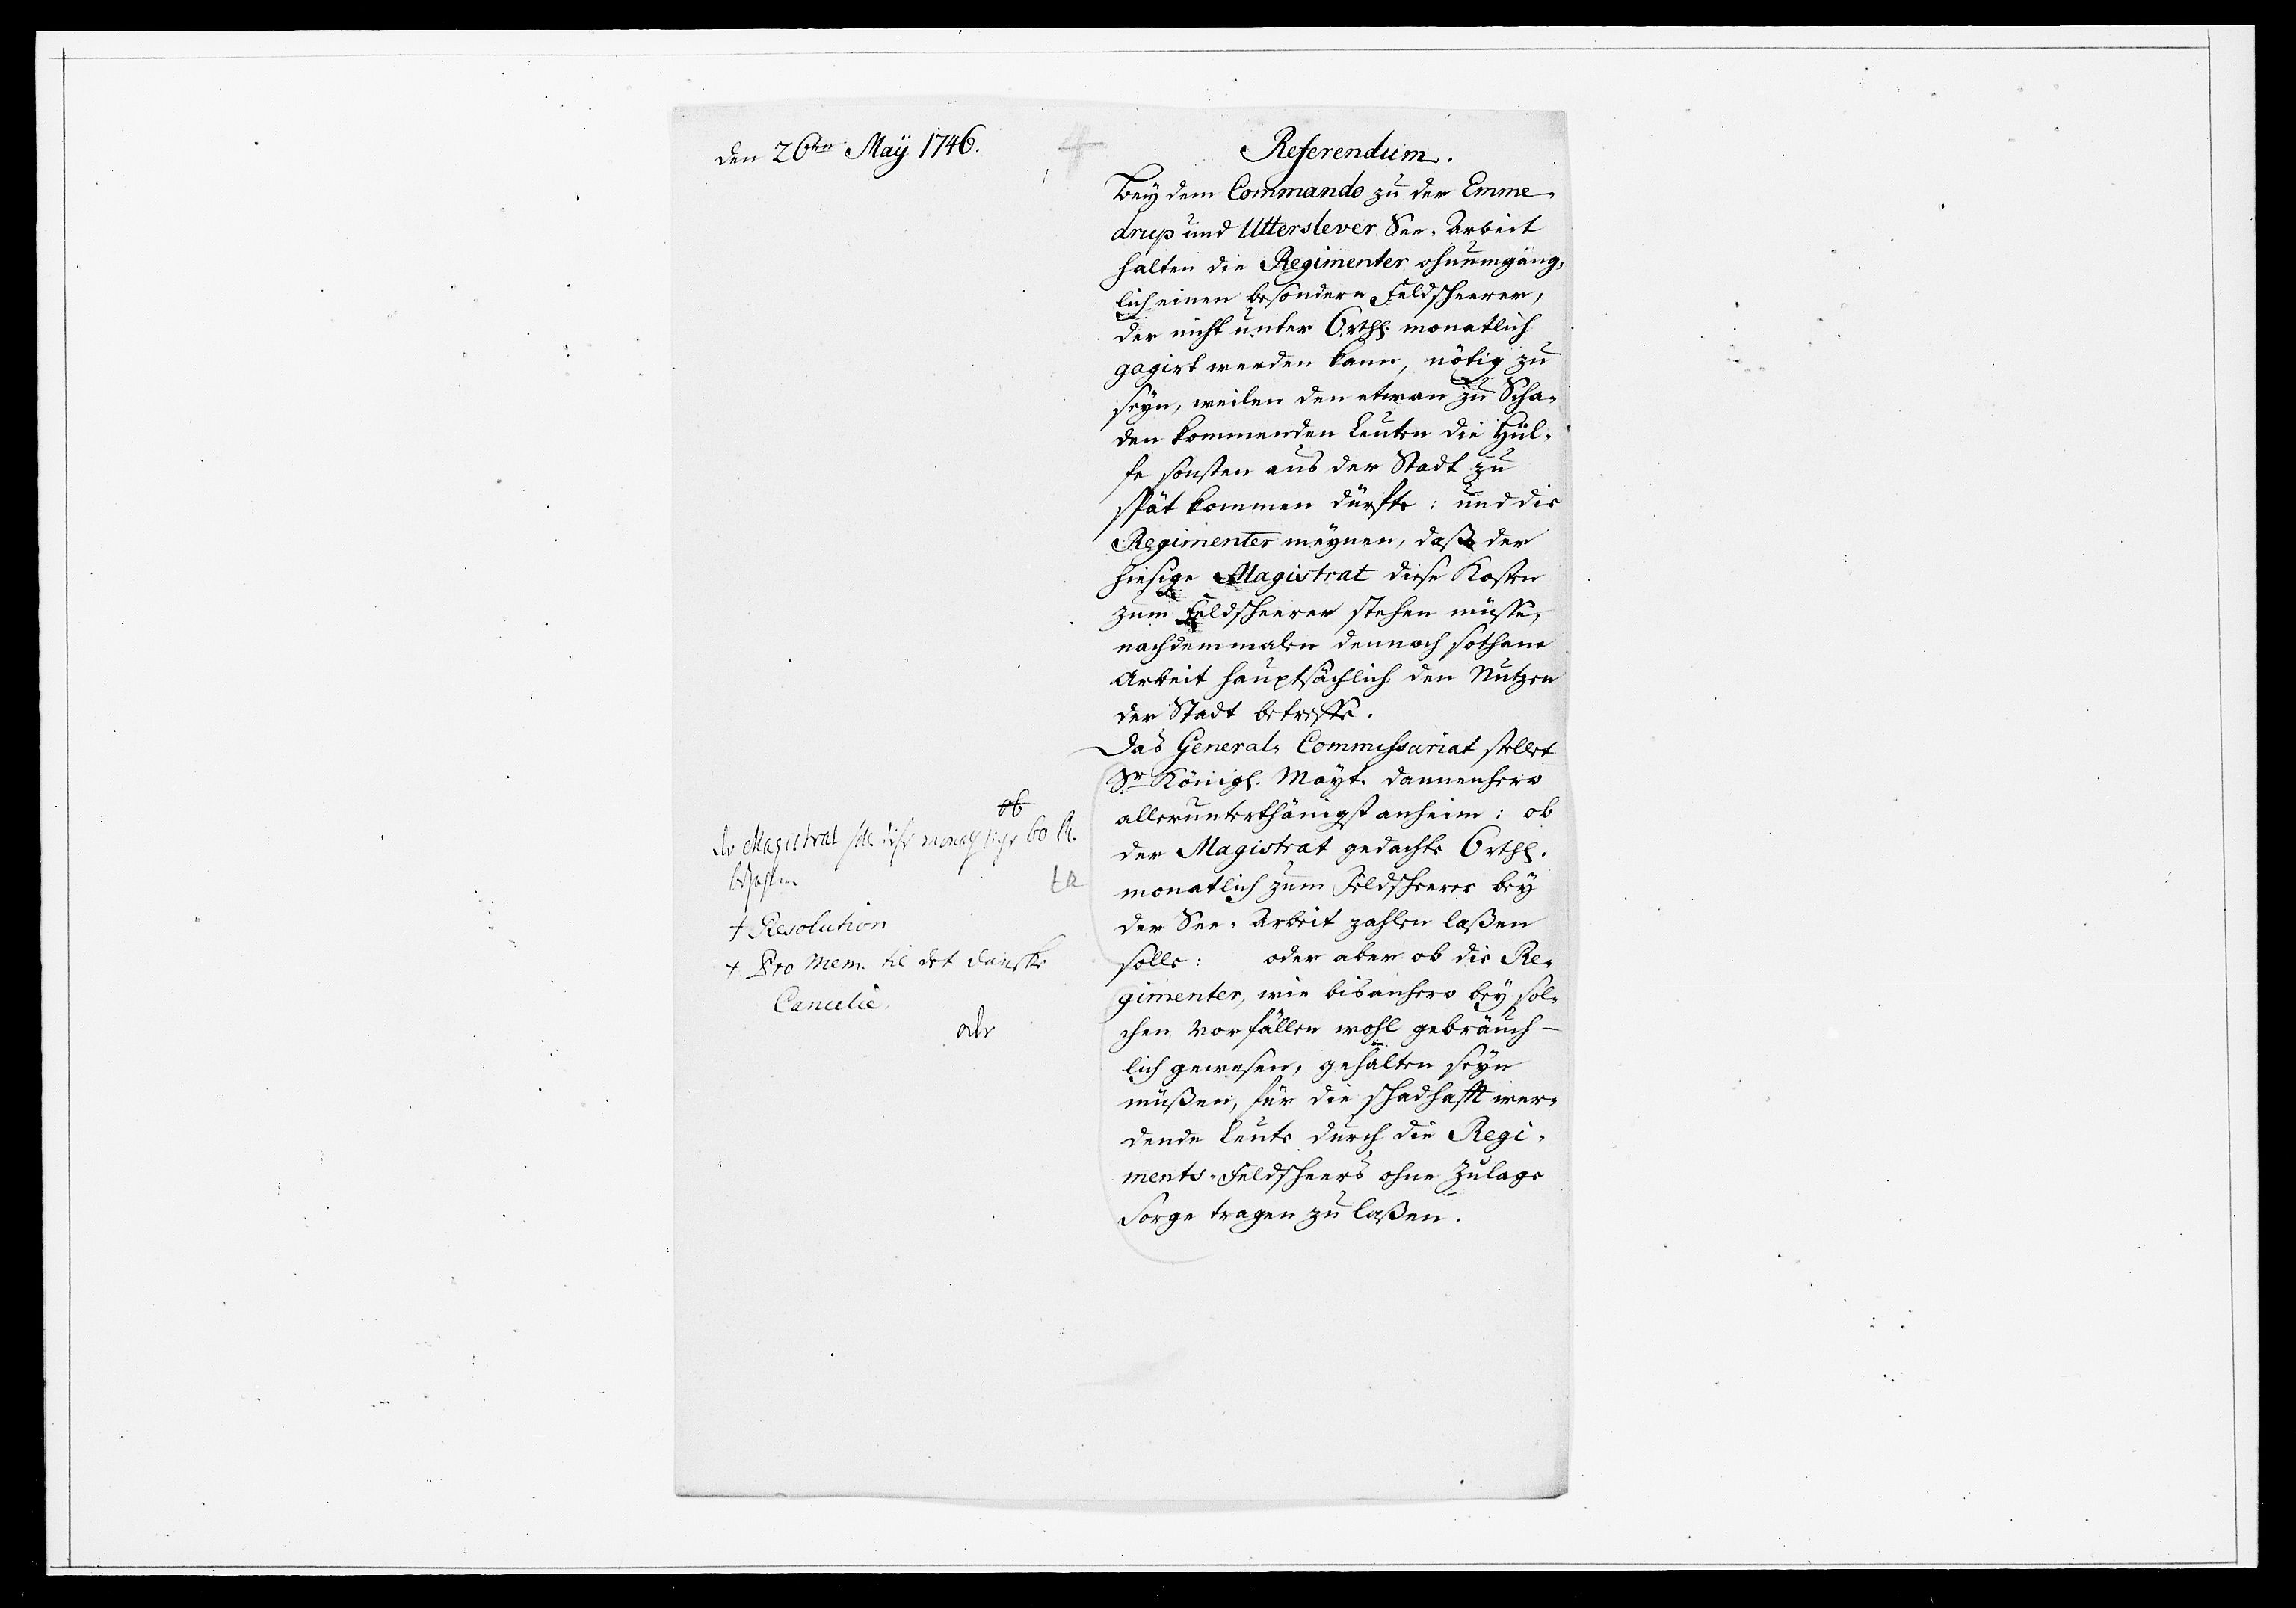 den 26ten Maÿ 1746.
Referendum.
Beÿ dem Commando zu der Emme
drup und Utterslever See-Arbeit
halten die Regimenter ohnumgäng-
lich einen besondern Feldscheerer,
der nicht unter 6 rthl. monatlich
gagirt werden kann, nötig zu
seÿn, weilen den etwan zu Scha-
den kommenden Leuten die Hül-
fe sonsten aus der Stadt zu
spät kommen dürfte: und die
Regimenter meÿnen, daß der
hiesige Magistrat diese Kosten
zum Feldscheerer stehen müsse,
nachdemmalen dennoch sothane
Arbeit hauptsächlich den Nutzen
der Stadt betreffe.
Das General-Commissariat stellet
Sr Königl. Maÿt. dannenhero
allerunterthänigst anheim: ob
der Magistrat gedachte 6 rthl.
monatlich zum Feldscheerer beÿ
der See-Arbeit zahlen laßen
solle: oder aber ob die Re-
gimenter, wie bis anhero beÿ sol-
chen Vorfällen wohl gebräuch-
lich gewesen, gehalten seÿn
müßen, für die schadhafft wer-
dende Leute durch die Regi-
ments-Feldscheers ohne Zulage
Sorge tragen zu laßen.
ob
der Magistrat soll diese
bezahlen
+ Resolution
+ Pro Mem. til det danske
Cancelie
oder